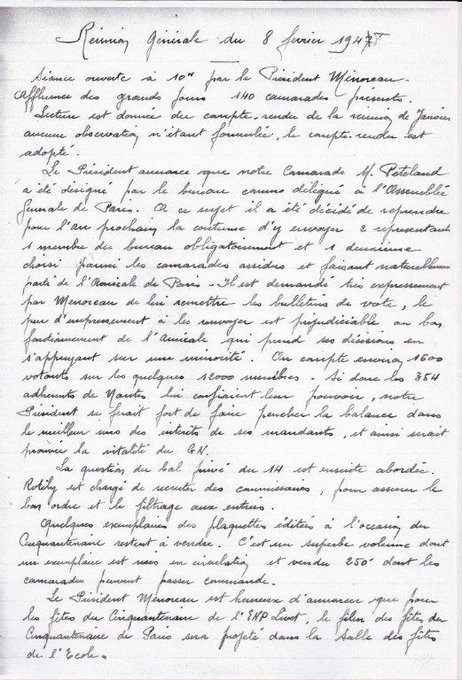 Réunion Générale du 8 février 1948
Séance ouverte à 10h par le Président Menoreau.
Affluence des grands jours 140 camarades présents.
Lecture est donnée du compte-rendu de la réunion de Janvier
aucune observation n'étant formulée, le compte-rendu est
adopté.
Le Président annonce que notre Camarade M. Peteland
a été désigné par le bureau comme délégué à l'Assemblée
Générale de Paris. A ce sujet il a été décidé de reprendre
pour l'an prochain la coutume d'y envoyer 2 représentants
1 membre du bureau obligatoirement et 1 deuxième
choisi parmi les camarades assidus et faisant naturellement
partie de l'Amicale de Paris - Il est demandé très expressément
par Menoreau de lui remettre les bulletins de vote, le
peu d'empressement à les renvoyer est préjudiciable au bon
fonctionnement de l'Amicale qui prend ses décisions en
s'appuyant sur une minorité. On compte environ 1600
votants sur les quelques 12000 membres. Si donc les 354
adhérents de Nantes lui confiaient leur pouvoir, notre
Président se ferait fort de faire pencher la balance dans
le meilleur sens des intérêts de ses mandants, et ainsi serait
prouvée la vitalité du GN.
La question du bal privé du 14 est ensuite abordée.
Rotihy est chargé de recruter des commissaires, pour assurer le
bon ordre et le filtrage aux entrées.
Quelques exemplaires des plaquettes éditées à l'occasion du
Cinquantenaire restent à vendre. C'est un superbe volume dont
un exemplaire est mis en circulation et vendu 250f dont les
camarades peuvent passer commande.
Le Président Menoreau est heureux d'annoncer que pour
les fêtes du Cinquantenaire de l'ENP Livet, le film des fêtes du
Cinquantenaire de Paris sera projeté dans la Salle des fêtes
de l'Ecole.